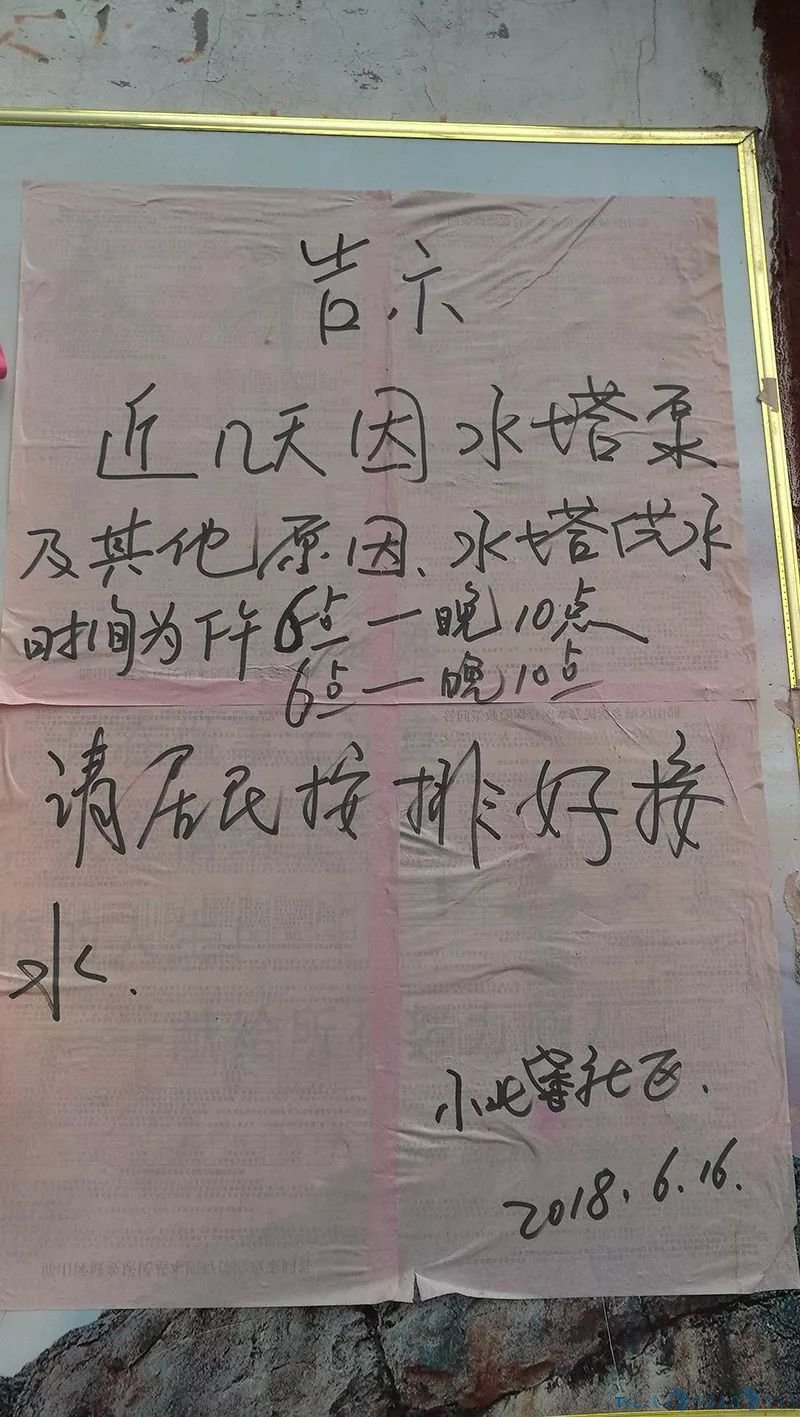 告示
近几天因水塔泵
及其他原因、水塔供水
时间为下午6点一晚10点
6点一晚10点
请居民按排好接
水.
小北窑社区.
2018.6.16.